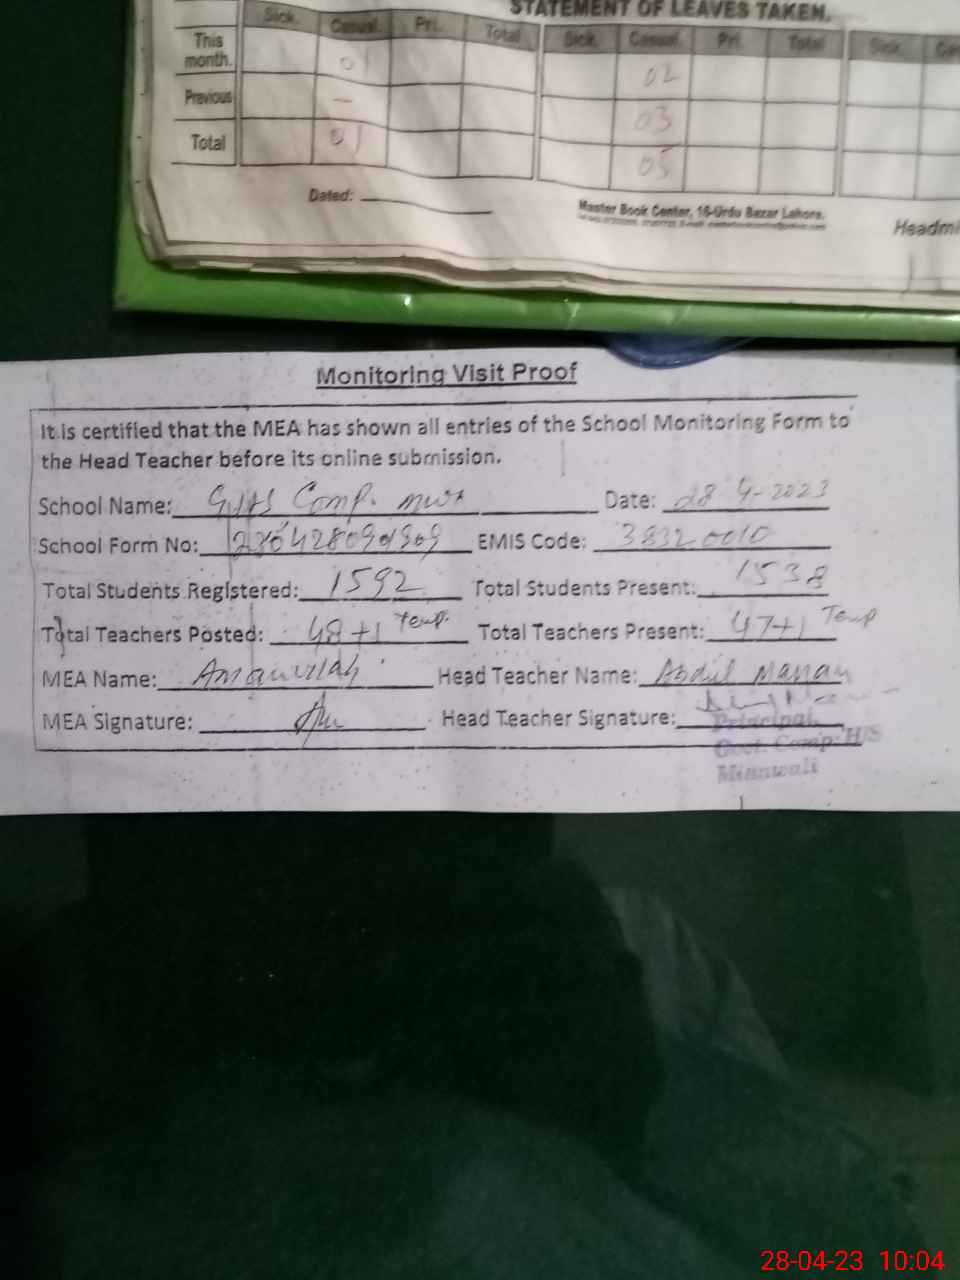 STATEMENT OF LEAVES TAKEN.
Sick. Casual. Pri. Total Sick. Casual. Pri. Total Sick.
This month. 01 02
Previous — 03
Total 01 05
Dated:
Master Book Center, 16-Urdu Bazar Lahore.
Monitoring Visit Proof
It is certified that the MEA has shown all entries of the School Monitoring Form to
the Head Teacher before its online submission.
School Name: GHS Comp. mwi Date: 28 4-2023
School Form No: EMIS Code: 38320010
Total Students Registered: 1592 Total Students Present: 1538
Total Teachers Posted: 48+1 Temp. Total Teachers Present: 47+1 Temp
MEA Name: Amanullah Head Teacher Name: Abdul Manan
MEA Signature: Head Teacher Signature:
Principal
Govt. Comp: H/S
Mianwali
28-04-23 10:04